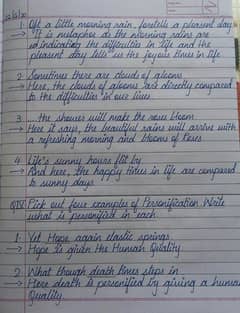 1. Oft a little morning rain, foretells a pleasant day
→ It is metaphor as the morning rains are
indicating the difficulties in life and the
pleasant day tells us the joyous times in life
2. Sometimes there are clouds of gloom
→ Here, the clouds of gloom are directly compared
to the difficulties in our lives
3. ... the shower will make the roses bloom
→ Here it says, the beautiful rains will arrive with
a refreshing morning and blooms of Roses
4. Life's sunny hours flit by
→ And here, the happy times in life are compared
to sunny days
Pick out four examples of Personification. Write
what is personified in each.
1. Yet Hope again elastic springs
→ Hope is given the Human Quality
2. What though death times steps in
→ Here death is personified by giving a human
Quality